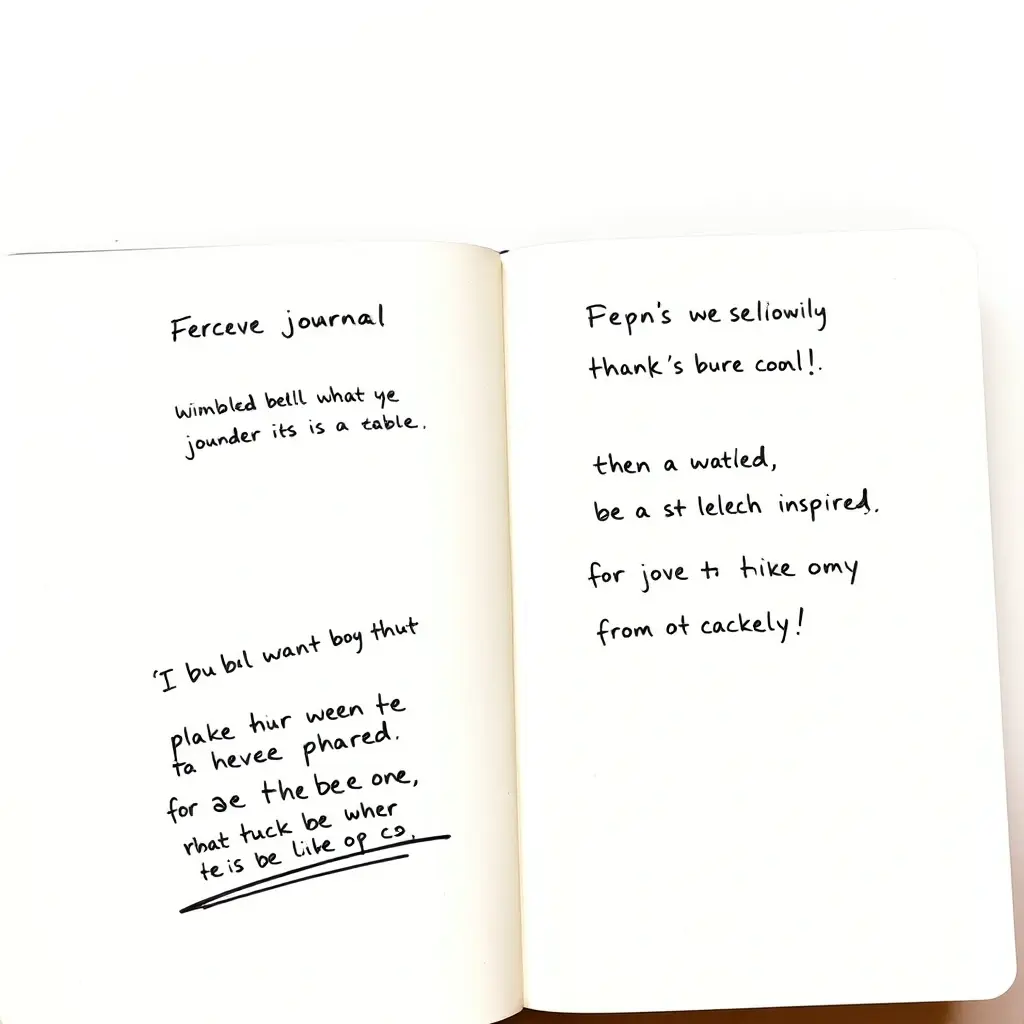 Ferceve journal
wimbled belll what ye
jounder its is a table.
'I bu bul want boy thut
plake hur ween te
ta hevee phared.
for ae the bee one,
rhat tuck be wher
te is be like op co.
Fepn's we seliowily
thank's bure conl!.
then a watled,
be a st lelech inspired.
for jove tr hike omy
from ot cackely!